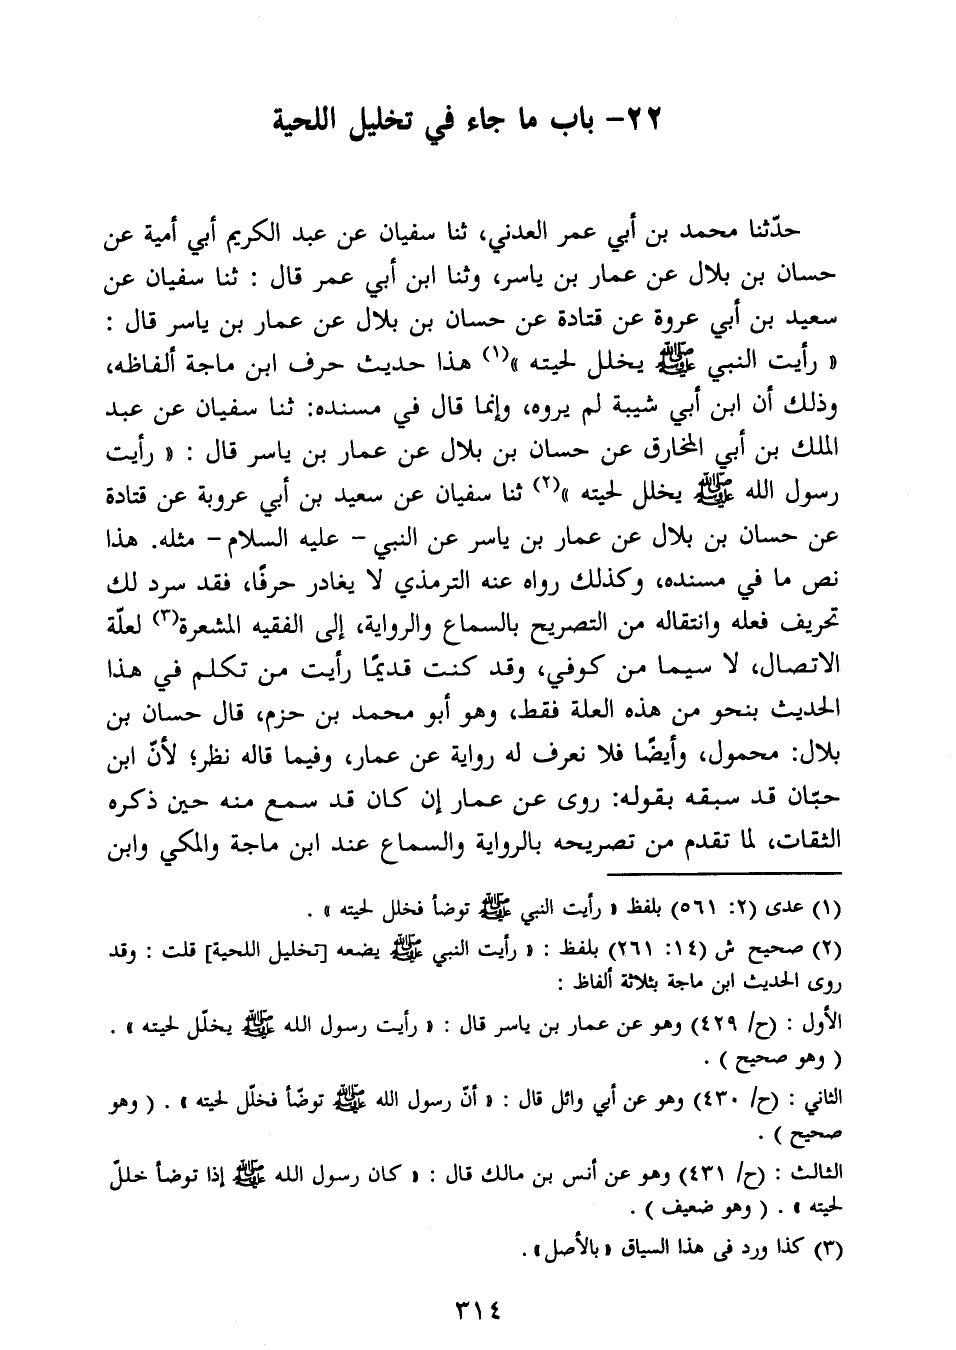 ٢٢- باب ما جاء في تخليل اللحية
حدّثنا محمد بن أبي عمر العدني، ثنا سفيان عن عبد الكريم أبي أمية عن
حسان بن بلال عن عمار بن ياسر، وثنا ابن أبي عمر قال : ثنا سفيان عن
سعيد بن أبي عروة عن قتادة عن حسان بن بلال عن عمار بن ياسر قال :
« رأيت النبي ﷺ يخلل لحيته »(١) هذا حديث حرف ابن ماجة ألفاظه،
وذلك أن ابن أبي شيبة لم يروه، وإنما قال في مسنده: ثنا سفيان عن عبد
الملك بن أبي المخارق عن حسان بن بلال عن عمار بن ياسر قال : « رأيت
رسول الله ﷺ يخلل لحيته »(٢) ثنا سفيان عن سعيد بن أبي عروبة عن قتادة
عن حسان بن بلال عن عمار بن ياسر عن النبي - عليه السلام - مثله. هذا
نص ما في مسنده، وكذلك رواه عنه الترمذي لا يغادر حرفًا، فقد سرد لك
تحريف فعله وانتقاله من التصريح بالسماع والرواية، إلى الفقيه المشعرة(٣) لعلّة
الاتصال، لا سيما من كوفي، وقد كنت قديمًا رأيت من تكلم في هذا
الحديث بنحو من هذه العلة فقط، وهو أبو محمد بن حزم، قال حسان بن
بلال: محمول، وأيضًا فلا نعرف له رواية عن عمار، وفيما قاله نظر؛ لأنّ ابن
حبّان قد سبقه بقوله: روى عن عمار إن كان قد سمع منه حين ذكره
الثقات، لما تقدم من تصريحه بالرواية والسماع عند ابن ماجة والمكي وابن
(١) عدى (٢: ٥٦١) بلفظ « رأيت النبي ﷺ توضأ فخلل لحيته » .
(٢) صحيح ش (١٤: ٢٦١) بلفظ : « رأيت النبي ﷺ يضعه [تخليل اللحية] قلت : وقد
روى الحديث ابن ماجة بثلاثة ألفاظ :
الأول : (ح/ ٤٢٩) وهو عن عمار بن ياسر قال : « رأيت رسول الله ﷺ يخلّل لحيته » .
( وهو صحيح ) .
الثاني : (ح/ ٤٣٠) وهو عن أبي وائل قال : « أنّ رسول الله ﷺ توضّأ فخلّل لحيته » . ( وهو
صحيح ) .
الثالث : (ح/ ٤٣١) وهو عن أنس بن مالك قال : « كان رسول الله ﷺ إذا توضأ خللّ
لحيته » . ( وهو ضعيف ) .
(٣) كذا ورد فى هذا السياق « بالأصل» .
٣١٤